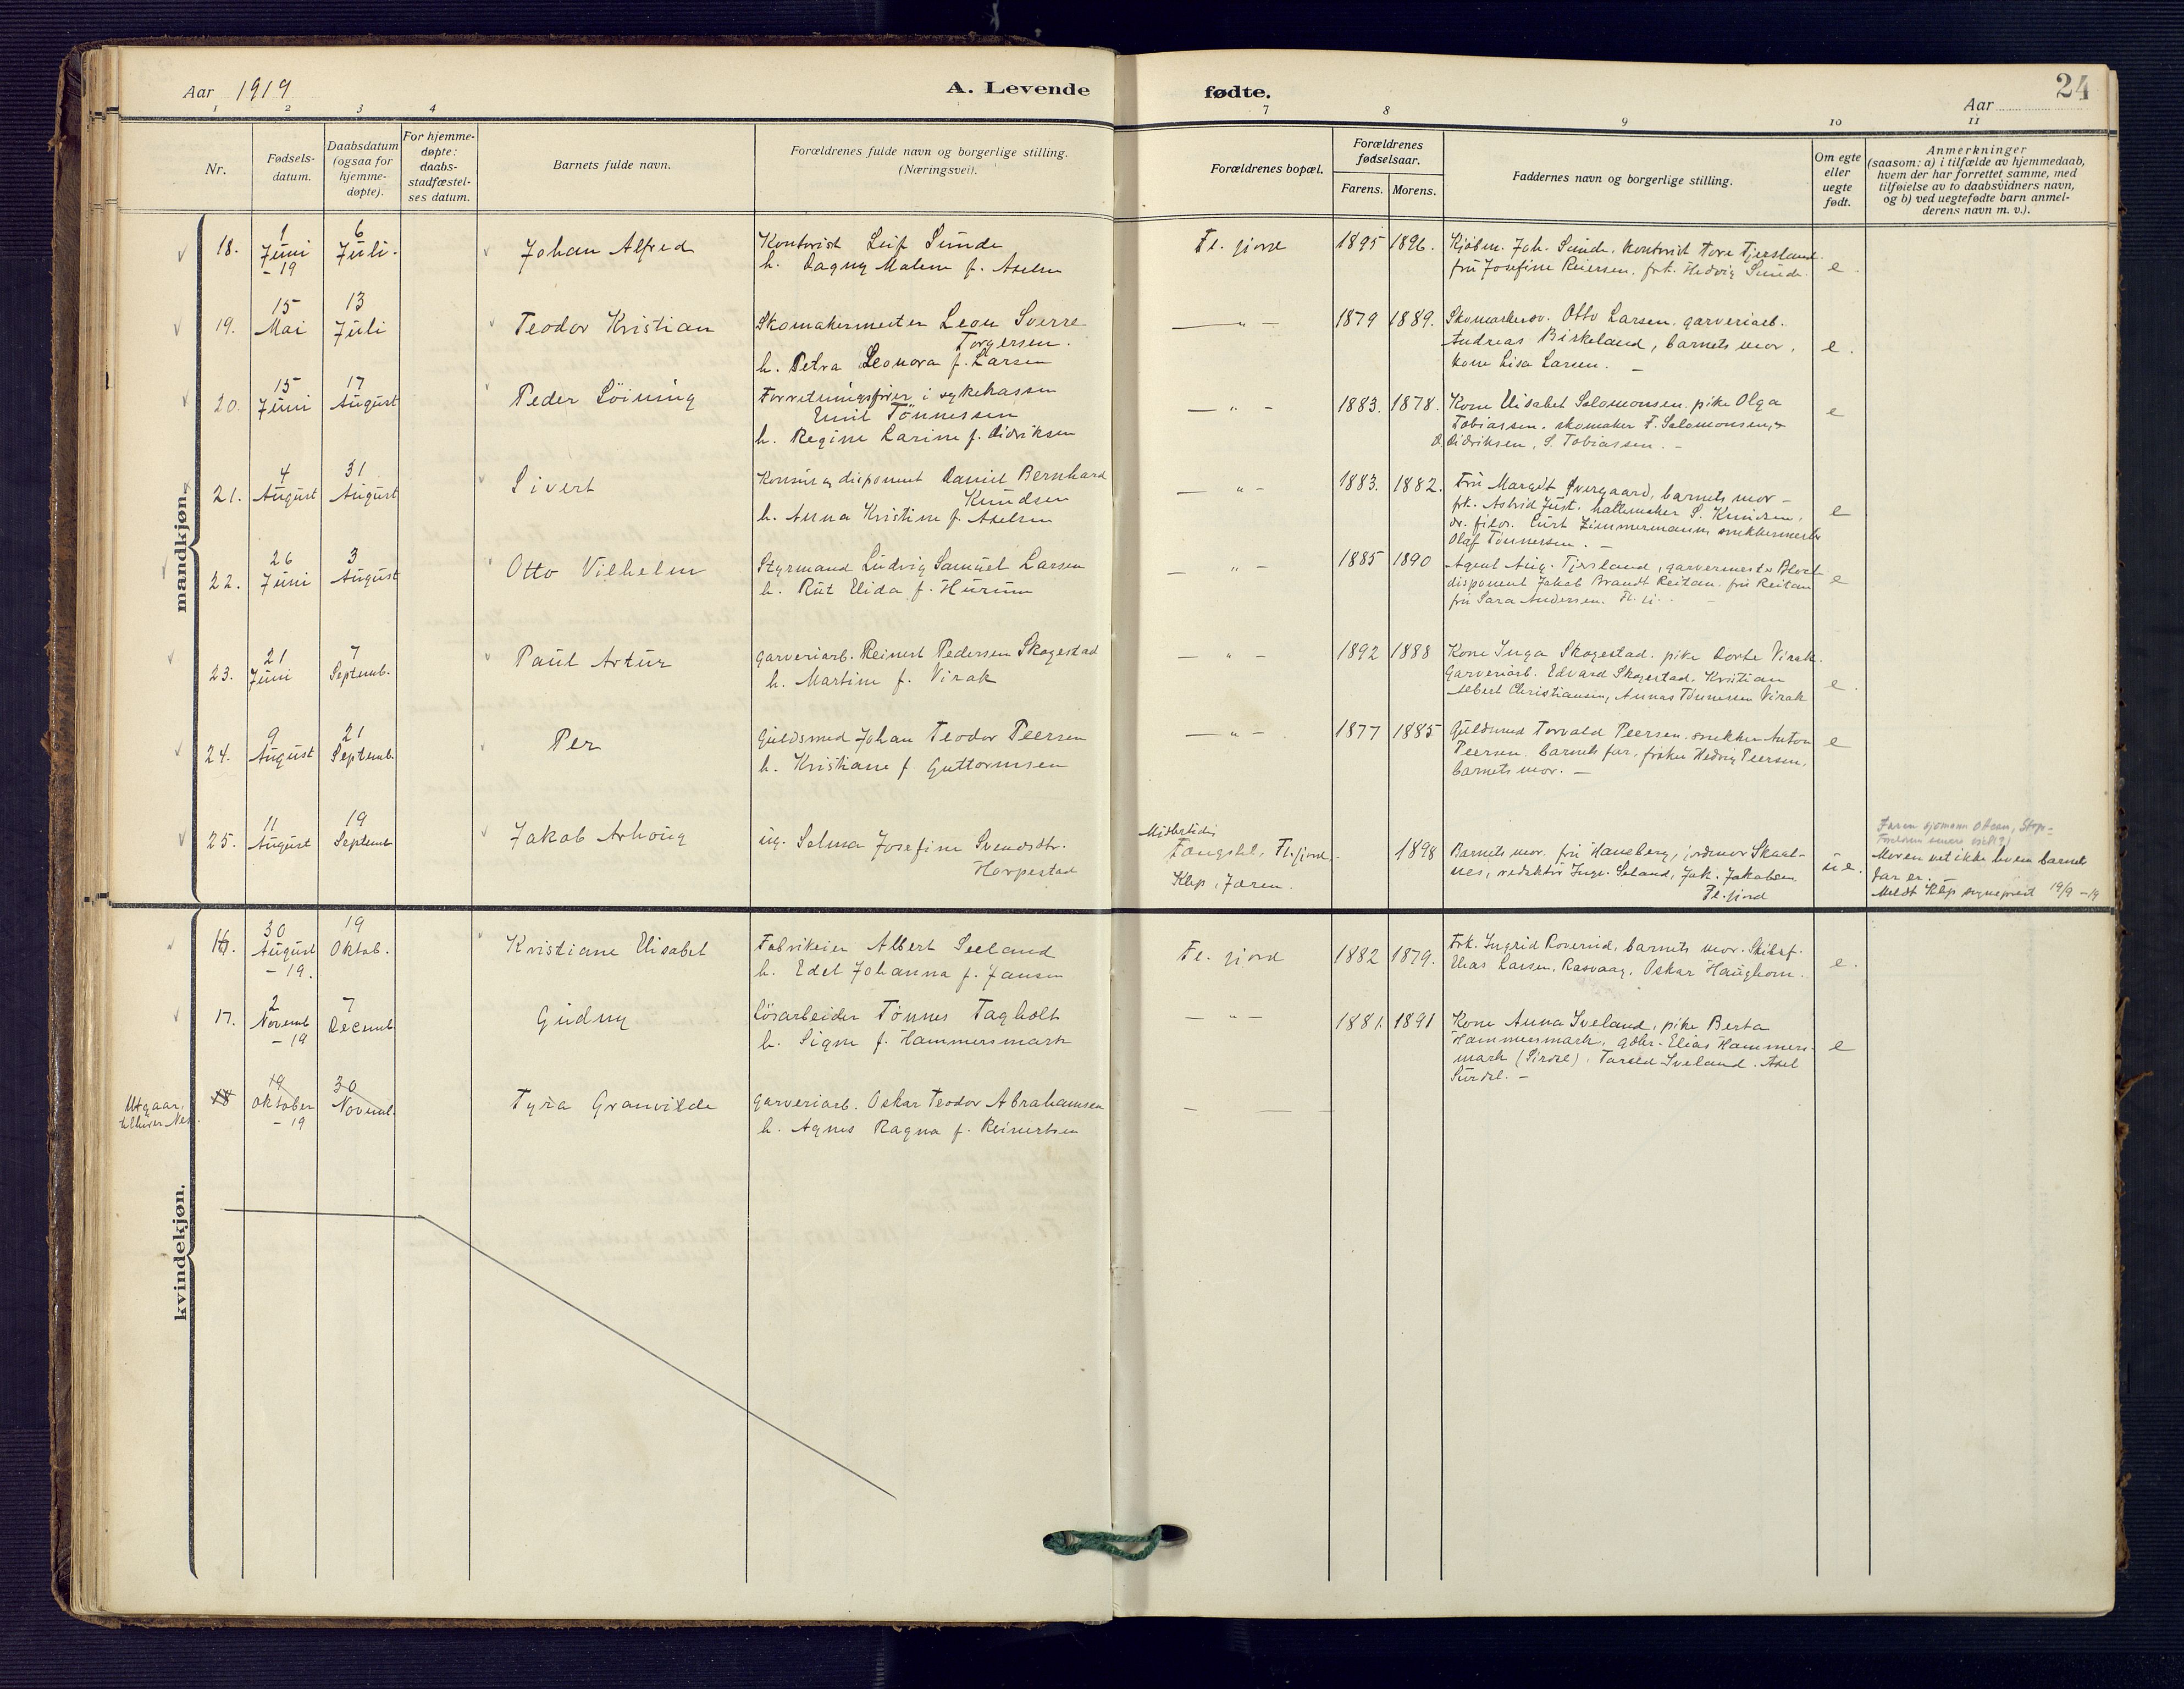 Aar 1919
A. Levende
fødte.
24
Aar
1 2 3 4 7 8 9 10 11
Nr.
Fødsels-
datum.
Daabsdatum
(ogsaa for
hjemme-
døpte).
For hjemme-
døpte:
daabs-
stadfæstel-
ses datum.
Barnets fulde navn.
Forældrenes fulde navn og borgerlige stilling.
(Næringsvei).
Forældrenes bopæl.
Forældrenes
fødselsaar.
Farens. Morens.
Faddernes navn og borgerlige stilling.
Om egte
eller
uegte
født.
Anmerkninger
(saasom: a) i tilfælde av hjemmedaab,
hvem der har forrettet samme, med
tilføielse av to daabsvidners navn,
og b) ved uegtefødte barn anmel-
derens navn m. v.).
mandkjøn.
18. 1 Juni -19 6 Juli. Johan Alfred
Kontorist Leif Sunde
h. Dagny Malene f. Axelsen
Fl. fjord 1895 1896.
Kjøbm. Joh. Sunde. Kontorist Tore Tjersland
fru Josefine Reiersen, frk. Hedvig Sunde. e.
19. 15 Mai 13 Juli Teodor Kristian
Skomakermester Leon Sverre
Torgersen.
h. Petra Leonora f. Larsen
— " — 1879 1889.
Skomakersv. Otto Larsen, garveriarb.
Andreas Birkeland, barnets mor,
kone Lisa Larsen. — e.
20. 15 Juni 17 August Peder Löining
Forretningsfører i sykekassen
Emil Tönnessen
h. Regine Larine f. Didriksen
— " — 1883. 1878.
Kone Elisabet Salomonsen, pike Olga
Tobiassen, skomaker T. Salomonsen,
D. Didriksen, S. Tobiassen. — e
21. 4 August 31 August Sivert
Konsul og disponent Daniel Bernhard
Knudsen
h. Anna Kristine f. Axelsen
— " — 1883. 1882.
Fru Margit Overgaard, barnets mor —
frk. Astrid Just, S. Knudsen,
dr. filos. Curt Zimmermann, snekkermester
Olaf Tönnessen. — e
22. 26 Juni 3 August Otto Vilhelm
Styrmand Ludvig Samuel Larsen
h. Rut Elida f. Hurum
— " — 1885 1890
Agent Aug. Tjersland, garvermester
disponent Jakob Brandt Reitan, fru Reitan
fru Sara Andersen. e
23. 21 Juni 7 Septemb. Paul Artur
Garveriarb. Reinert Pedersen Skogestad
h. Martine f. Virak
— " — 1892 1888
Kone Inga Skogestad, pike Dorte Virak.
Garveriarb. Edvard Skogestad, Kristian
Albert Christiansen, Annas Tönnesen Virak e.
24. 9 August 21 Septemb. Per
Guldsmed Johan Teodor Peersen
h. Kristiane f. Guttormsen
— " — 1877 1885
Guldsmed Torvald Peersen, snekker Anton
Peersen, barnets far, frøken Hedvig Peersen,
barnets mor. — e
25. 11 August 19 Septemb Jakob Arhoug
ug. Selma Josefine Svendsdtr.
Horpestad
Midlertidig
Fængslet, Fl.fjord.
Klep, Jæren.
1898
Barnets mor, fru Haneberg, jordmor Skaal-
nes, redaktör Inge. Seland, Jak. Jakobsen
Fl.fjord
u e.
Faren sjømann Olsen,
Moren vet ikke hvem barnets
far er. —
Meldt Klep sogneprest 19/9 -19
kvindekjøn.
16. 30 August -19. 19 Oktob. Kristiane Elisabet
Fabrikeier Albert Seeland
h. Edel Johanna f. Jansen
Fl. fjord 1882 1879.
Frk. Ingrid Rovernd, barnets mor. Skibsf.
Elias Larsen, Rasvaag, Oskar Haughom. e.
17. 2 Novemb -19 7 Decemb Gudny
Lösarbeider Tönnes Tagholt
h. Signe f. Hammersmark
— " — 1881. 1891
Kone Anna Sveland, pike Berta
Hammersmark, gdbr. Elias Hammers-
mark (Sirdal), Tarald Sveland. Axel
Surdal. — e
Utgaar,
tilhører Nes.
18 19 Oktober -19 30 Novemb. Tyra Granvilde
Garveriarb. Oskar Teodor Abrahamsen
h. Agnes Ragna f. Reinertsen
— — —